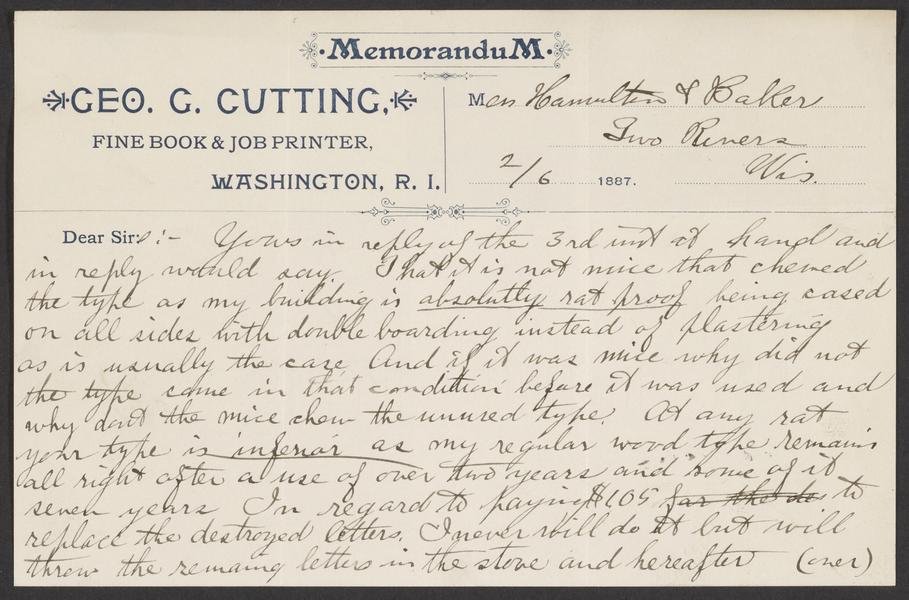 MemoranduM.
GEO. G. CUTTING,
FINE BOOK & JOB PRINTER,
WASHINGTON, R. I.
Mess Hamilton & Baker
Two Rivers
2/6 1887. Wis.
Dear Sir:s :- Yours in reply of the 3rd inst at hand and
in reply would say That it is not mice that chewed
the type as my building is absolutly rat proof being cased
on all sides with double boarding instead of plastering
as is usually the case. And if it was mice why did not
the type come in that condition before it was used and
why dont the mice chew the unused type. At any rat
your type is inferior as my regular wood type remains
all right after a use of over two years and some of it
seven years In regard to paying $1.05 for the des to
replace the destroyed letters. I never will do it but will
throw the remaing letters in the stove and hereafter (over)